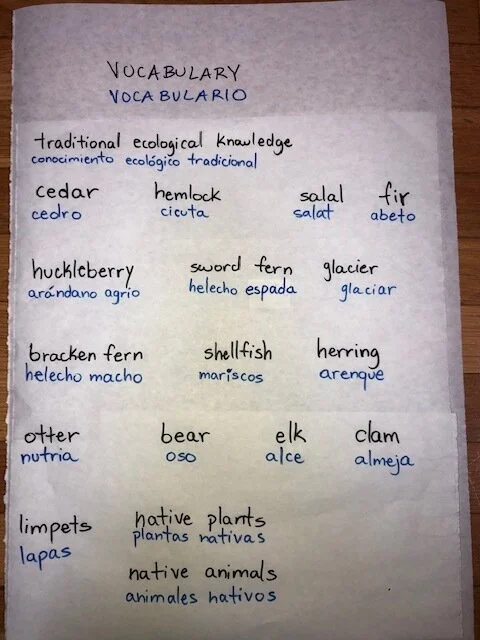 VOCABULARY
VOCABULARIO
traditional ecological knowledge
conocimiento ecológico tradicional
cedar hemlock salal fir
cedro cicuta salat abeto
huckleberry sword fern glacier
arándano agrio helecho espada glaciar
bracken fern shellfish herring
helecho macho mariscos arenque
otter bear elk clam
nutria oso alce almeja
limpets native plants
lapas plantas nativas
native animals
animales nativos